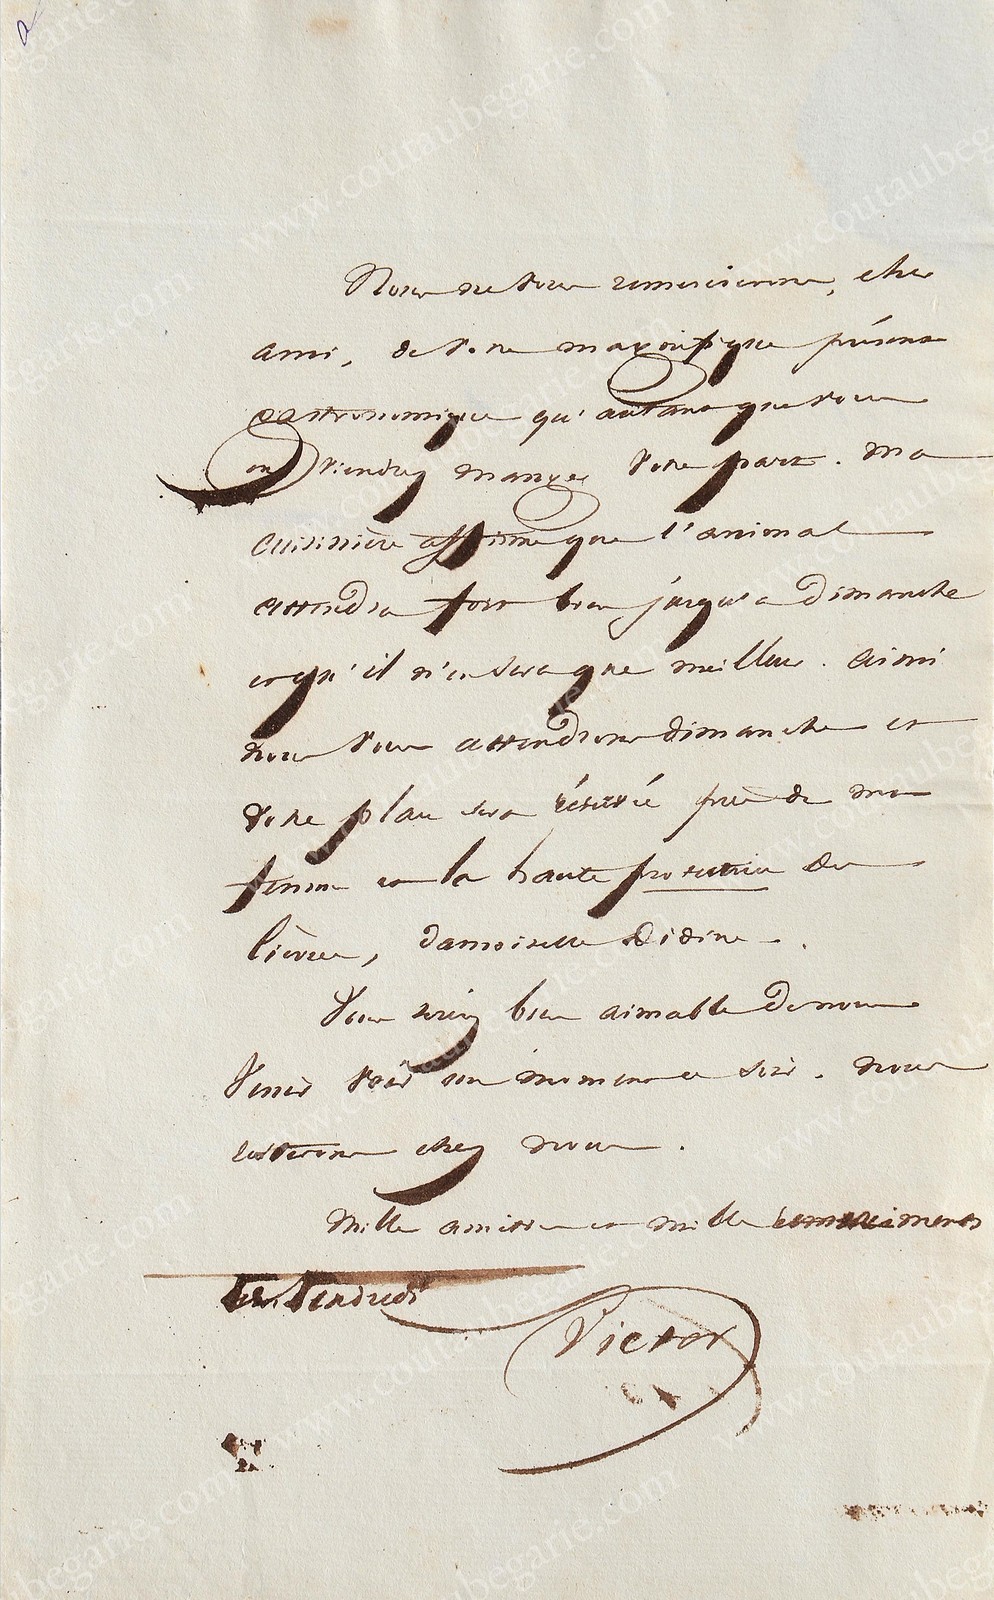 Nous ne vous remercierons, cher
ami, de votre magnifique présent
gastronomique qu'autant que vous
en viendrez manger votre part. Ma
cuisinière affirme que l'animal
attendra fort bien jusqu'à Dimanche
et qu'il n'en sera que meilleur. Ainsi
nous vous attendrons dimanche et
votre place sera réservée près de ma
femme et la haute protectrice des
lièvres, damoiselle Didine.
Vous seriez bien aimable de nous
venir voir un moment ce soir. Nous
resterons chez nous.
Mille amitiés et mille remerciments
Vendredi
Victor
www.coutaubegarie.com